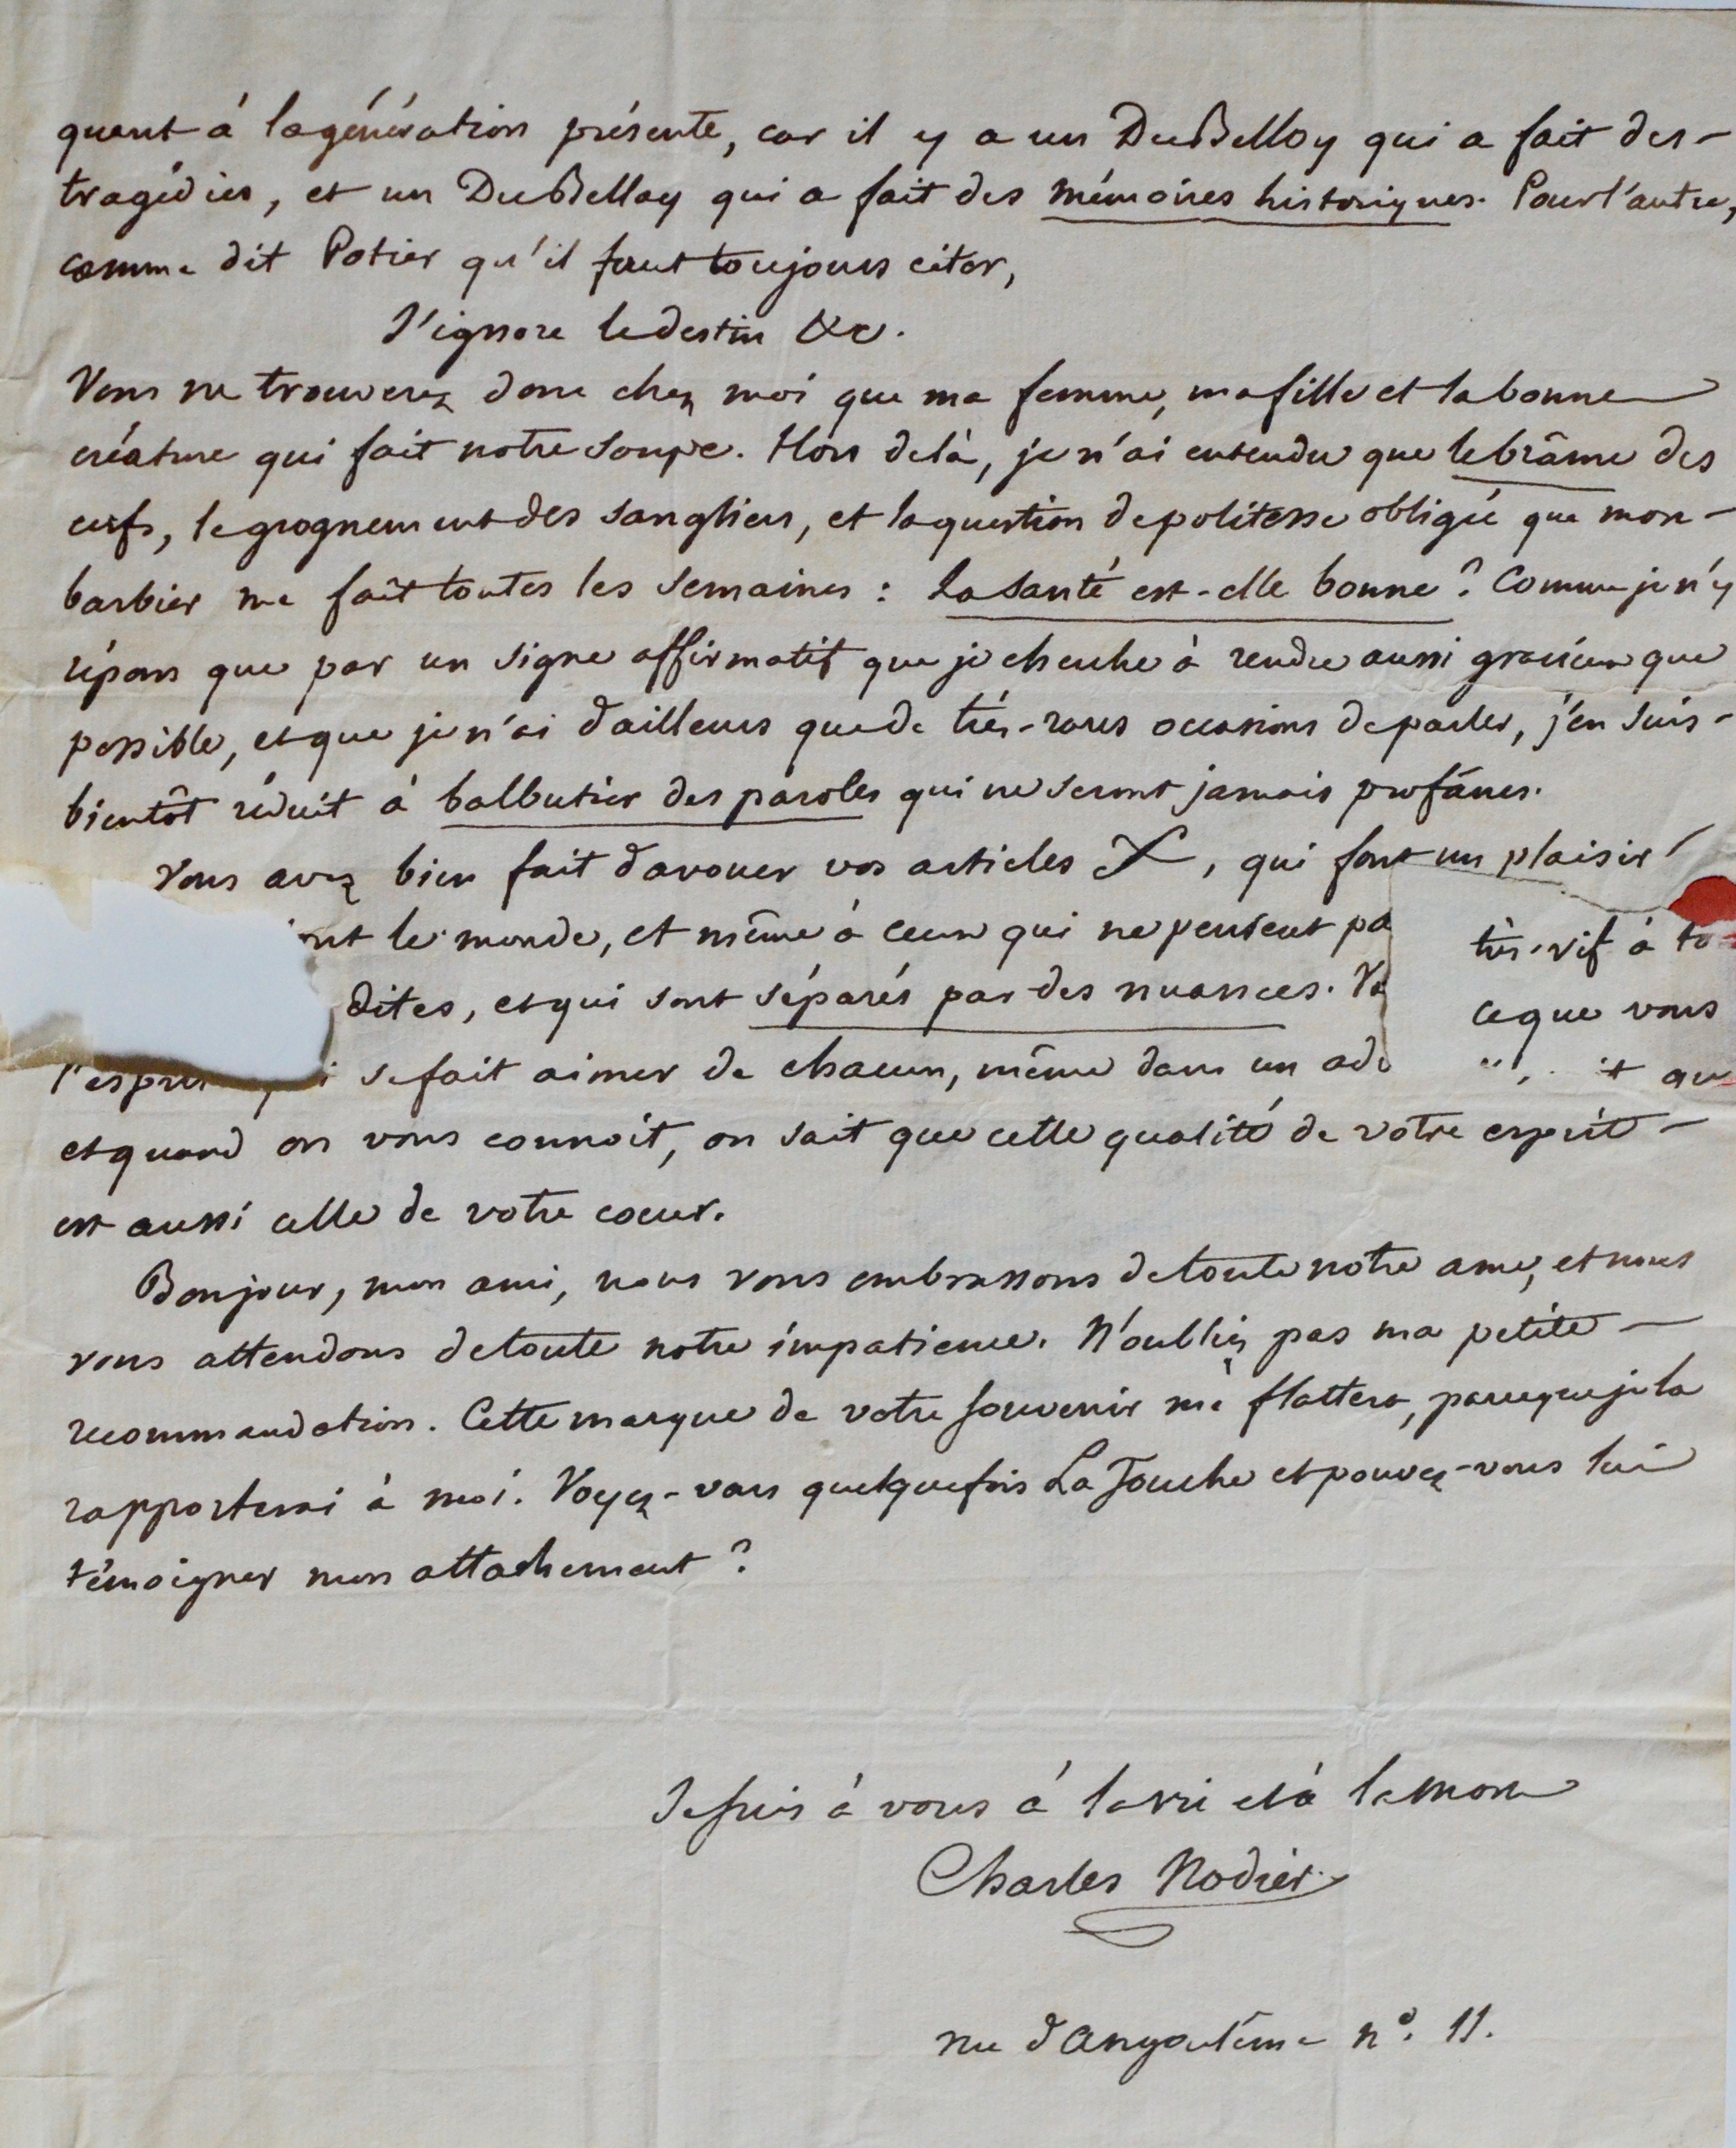 quant à la génération présente, car il y a un DuBelloy qui a fait des
tragédies, et un DuBellay qui a fait des mémoires historiques. Pour l'autre,
comme dit Potier qu'il faut toujours citer,
J'ignore le destin &c.
Vous ne trouverez donc chez moi que ma femme, ma fille et la bonne
créature qui fait notre soupe. Hors delà, je n'ai entendu que le brâme des
cerfs, le grognement des sangliers, et la question de politesse obligée que mon
barbier me fait toutes les semaines : La santé est-elle bonne ? Comme je n'y
répons que par un signe affirmatif que je cherche à rendre aussi gracieux que
possible, et que je n'ai d'ailleurs que de très-rares occasions de parler, j'en suis
bientôt réduit à balbutier des paroles qui ne seront jamais profânes.
Vous avez bien fait d'avouer vos articles, qui font un plaisir
le monde, et même à ceux qui ne pensent pa très-vif à to
dites, et qui sont séparés par des nuances. ce que vous
se fait aimer de chacun, même dans un
et quand on vous connoit, on sait que cette qualité de votre esprit
est aussi celle de votre coeur.
Bonjour, mon ami, nous vous embrassons de toute notre ame, et nous
vous attendons de toute notre impatience. N'oubliez pas ma petite
recommandation. Cette marque de votre souvenir me flattera, parceque je la
rapporterai à moi. Voyez-vous quelquefois La Touche et pouvez-vous lui
témoigner mon attachement ?
Je suis à vous à la vie et à la mort
Charles Nodier
rue d'Angoulême n°. 11.